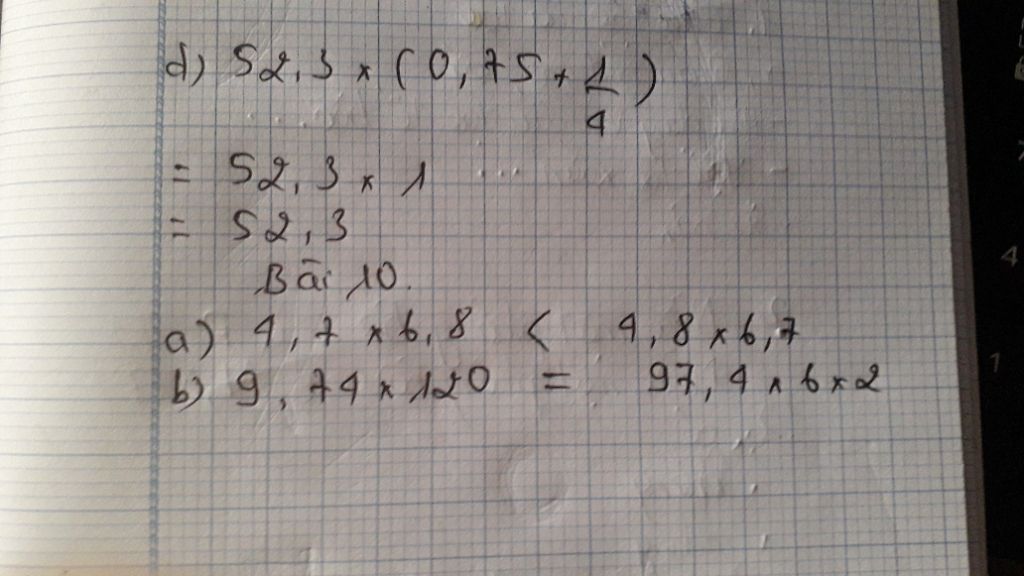 d) 52,3 × (0,75 + 1/4)
= 52,3 × 1
= 52,3
Bài 10.
a) 4,7 × 6,8 < 4,8 × 6,7
b) 9,74 × 120 = 97,4 × 6 × 2